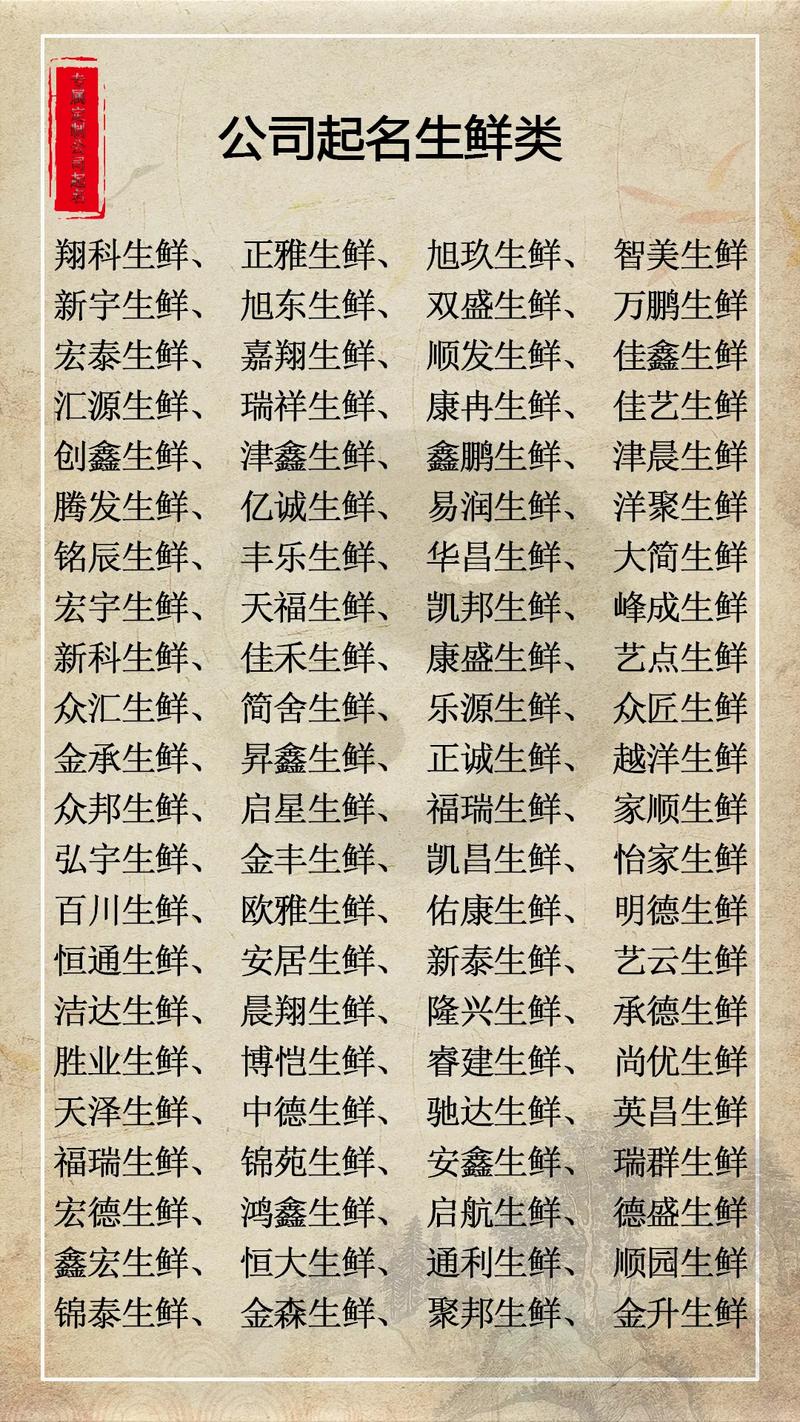 公司起名生鲜类
翔科生鲜、 正雅生鲜、 旭玖生鲜、 智美生鲜
新宇生鲜、 旭东生鲜、 双盛生鲜、 万鹏生鲜
宏泰生鲜、 嘉翔生鲜、 顺发生鲜、 佳鑫生鲜
汇源生鲜、 瑞祥生鲜、 康冉生鲜、 佳艺生鲜
创鑫生鲜、 津鑫生鲜、 鑫鹏生鲜、 津晨生鲜
腾发生鲜、 亿诚生鲜、 易润生鲜、 洋聚生鲜
铭辰生鲜、 丰乐生鲜、 华昌生鲜、 大简生鲜
宏宇生鲜、 天福生鲜、 凯邦生鲜、 峰成生鲜
新科生鲜、 佳禾生鲜、 康盛生鲜、 艺点生鲜
众汇生鲜、 简舍生鲜、 乐源生鲜、 众匠生鲜
金承生鲜、 昇鑫生鲜、 正诚生鲜、 越洋生鲜
众邦生鲜、 启星生鲜、 福瑞生鲜、 家顺生鲜
弘宇生鲜、 金丰生鲜、 凯昌生鲜、 怡家生鲜
百川生鲜、 欧雅生鲜、 佑康生鲜、 明德生鲜
恒通生鲜、 安居生鲜、 新泰生鲜、 艺云生鲜
洁达生鲜、 晨翔生鲜、 隆兴生鲜、 承德生鲜
胜业生鲜、 博恺生鲜、 睿建生鲜、 尚优生鲜
天泽生鲜、 中德生鲜、 驰达生鲜、 英昌生鲜
福瑞生鲜、 锦苑生鲜、 安鑫生鲜、 瑞群生鲜
宏德生鲜、 鸿鑫生鲜、 启航生鲜、 德盛生鲜
鑫宏生鲜、 恒大生鲜、 通利生鲜、 顺园生鲜
锦泰生鲜、 金森生鲜、 聚邦生鲜、 金升生鲜